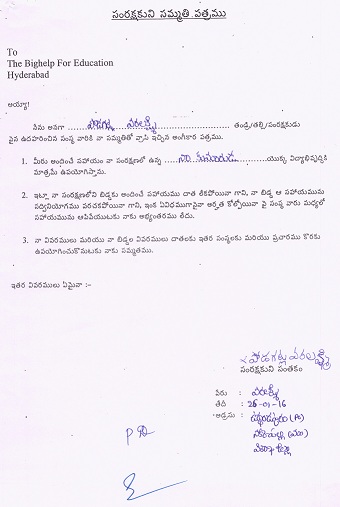 సంరక్షకుని సమ్మతి పత్రము
To
The Bighelp For Education
Hyderabad
అయ్యా!
నేను అనగా వరలక్ష్మి తండ్రి/తల్లి/సంరక్షకుడు
పైన ఉదహరించిన సంస్థ వారికి నా సమ్మతితో వ్రాసి ఇచ్చిన అంగీకార పత్రము.
1. మీరు అందించే సహాయం నా సంరక్షణలో ఉన్న యొక్క విద్యాభివృద్ధికి
మాత్రమే ఉపయోగిస్తాను.
2. ఇట్లా నా సంరక్షణలోని బిడ్డకు అందించే సహయము దాత లేకపోయినా గాని, నా బిడ్డ ఆ సహయమును
సద్వినియోగము పరచకపోయినా గాని, ఇంక ఏవిధముగానైనా అర్హత కోల్పోయినా పై సంస్థ వారు మధ్యలో
సహాయమును ఆపివేయుటకు నాకు అభ్యంతరము లేదు.
3. నా వివరములు మరియు నా బిడ్డల వివరములు దాతలకు ఇతర సంస్థలకు మరియు ప్రచారము కొరకు
ఉపయోగించుకొనుటకు నాకు సమ్మతము.
ఇతర వివరములు ఏమైనా :-
వరలక్ష్మి
సంరక్షకుని సంతకం
పేరు : వరలక్ష్మి
తేది : 26-01-16
అడ్రసు :